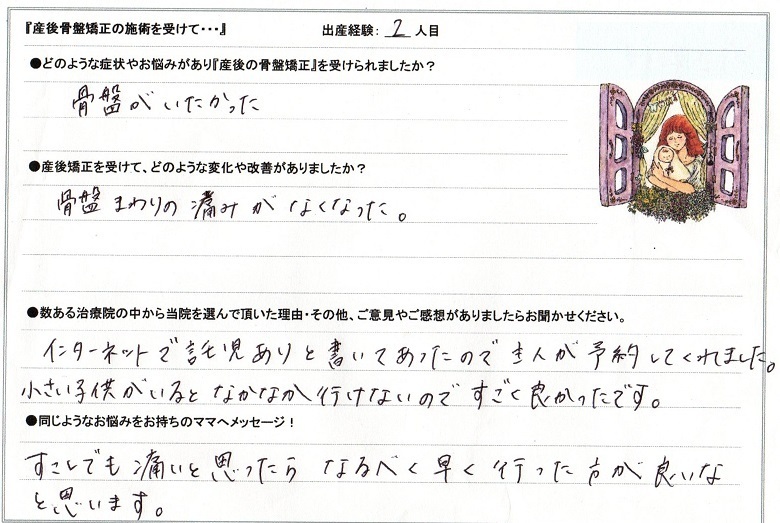 『産後骨盤矯正の施術を受けて・・・』 出産経験: 2 人目
●どのような症状やお悩みがあり『産後の骨盤矯正』を受けられましたか？
骨盤がいたかった
●産後矯正を受けて、どのような変化や改善がありましたか？
骨盤まわりの痛みがなくなった。
●数ある治療院の中から当院を選んで頂いた理由・その他、ご意見やご感想がありましたらお聞かせください。
インターネットで託児ありと書いてあったので主人が予約してくれました。
小さい子供がいるとなかなか行けないのですごく良かったです。
●同じようなお悩みをお持ちのママへメッセージ！
すこしでも痛いと思ったらなるべく早く行った方が良いな
と思います。